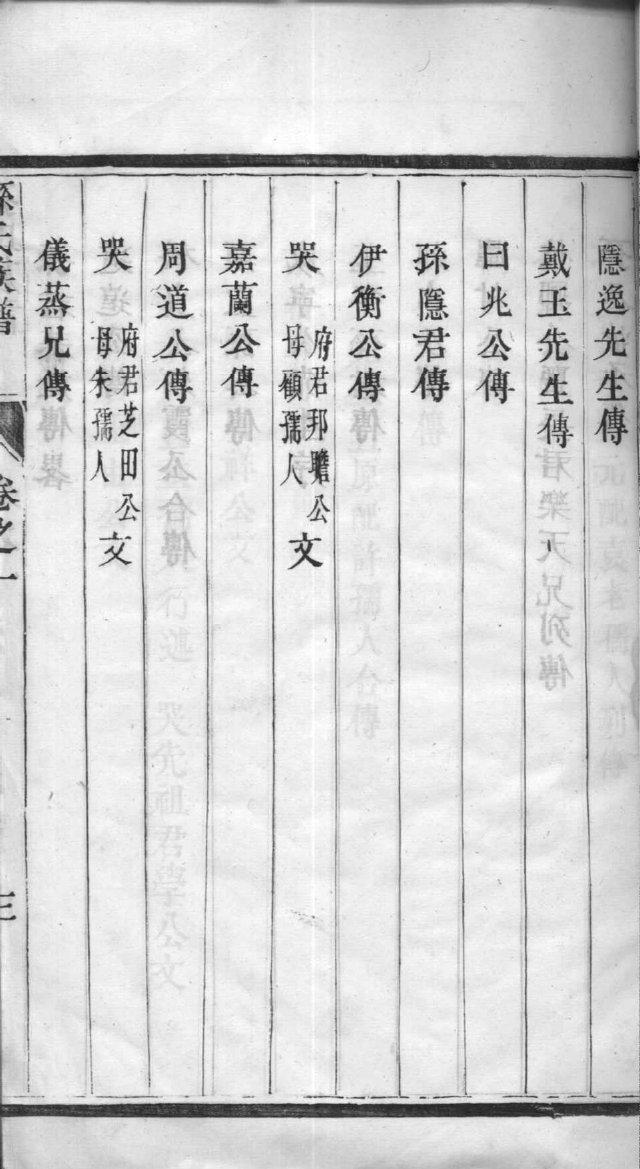 隱逸先生傳
戴玉先生傳
曰兆公傳
孫隱君傳
伊衡公傳
哭府君邦瞻公母顧孺人文
嘉蘭公傳
周道公傳
哭府君芝田公母朱孺人文
儀蒸兄傳
孫氏族譜 卷之一 三